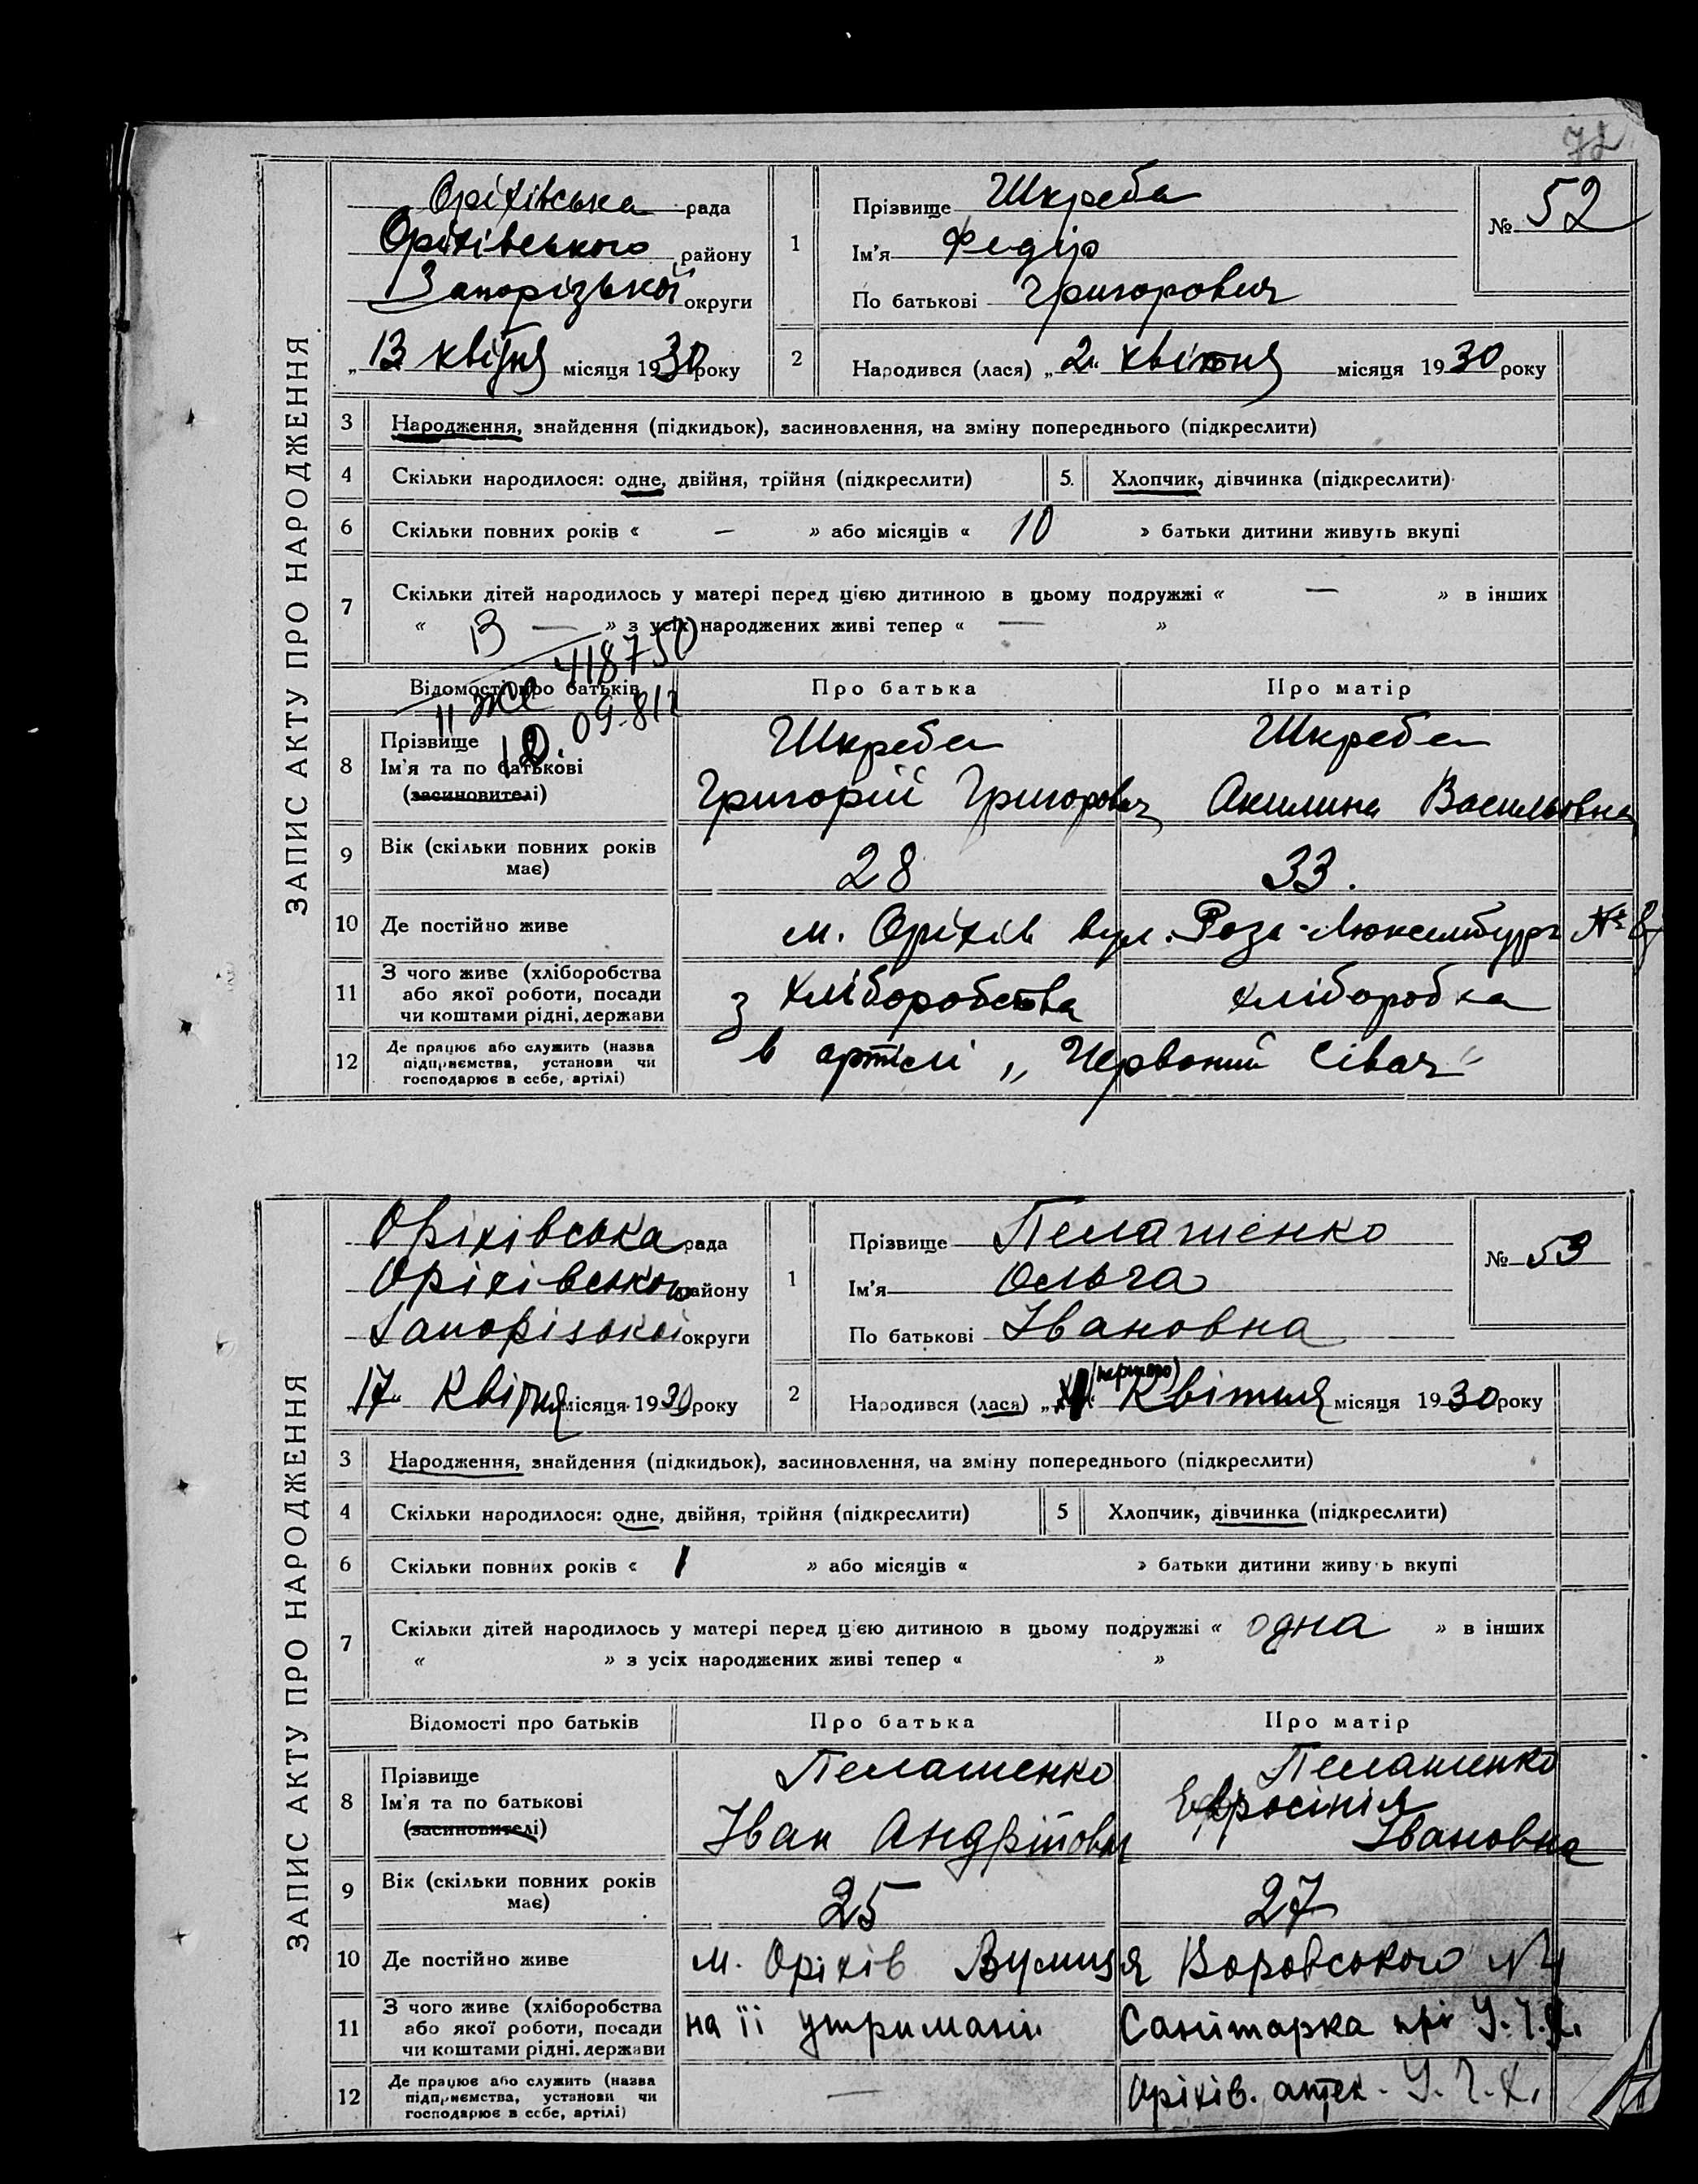 72
ЗАПИС АКТУ ПРО НАРОДЖЕННЯ
Оріхівська рада
Оріхівського району
Запорізької округи
„13 квітня місяця 1930 року
1 Прізвище Шкреба
Ім'я Федір
По батькові Григорович
№ 52
2 Народився (лася) „2" квітня місяця 1930 року
3 Народження, знайдення (підкидьок), засиновлення, на зміну попереднього (підкреслити)
4 Скільки народилося: одне, двійня, трійня (підкреслити) 5. Хлопчик, дівчинка (підкреслити)
6 Скільки повних років « — » або місяців « 10 » батьки дитини живуть вкупі
7 Скільки дітей народилось у матері перед цією дитиною в цьому подружжі « — » в інших
« — » з усіх народжених живі тепер « — »
418750
Відомості про батьків Про батька Про матір
8 Прізвище Шкреба Шкреба
Ім'я та по батькові Григорій Григорович Акилина Васильовна
(засиновителі)
9 Вік (скільки повних років має) 28 33.
10 Де постійно живе м. Оріхів вул. Роза-Люксембург № 8
11 З чого живе (хліборобства
або якої роботи, посади
чи коштами рідні, держави з хліборобства хліборобка
12 Де працює або служить (назва
підприємства, установи чи
господарює в себе, артілі) в артілі „Червоний Сівач"
ЗАПИС АКТУ ПРО НАРОДЖЕННЯ
Оріхівська рада
Оріхівського району
Запорізької округи
„17" Квітня місяця 1930 року
1 Прізвище Пелашенко
Ім'я Ольга
По батькові Івановна
№ 53
2 Народився (лася) „ (першого) Квітня місяця 1930 року
3 Народження, знайдення (підкидьок), засиновлення, на зміну попереднього (підкреслити)
4 Скільки народилося: одне, двійня, трійня (підкреслити) 5 Хлопчик, дівчинка (підкреслити)
6 Скільки повних років « 1 » або місяців « » батьки дитини живуть вкупі
7 Скільки дітей народилось у матері перед цією дитиною в цьому подружжі « одна » в інших
« » з усіх народжених живі тепер « »
Відомості про батьків Про батька Про матір
8 Прізвище Пелашенко Пелашенко
Ім'я та по батькові Іван Андрійович Евросінія Івановна
(засиновителі)
9 Вік (скільки повних років має) 25 27
10 Де постійно живе м. Оріхів Вулиця Воровського N 4
11 З чого живе (хліборобства
або якої роботи, посади
чи коштами рідні, держави на її утримані Санітарка прі У.Ч.Х.
12 Де працює або служить (назва
підприємства, установи чи
господарює в себе, артілі) — Оріхів. аптек. У.Ч.Х.